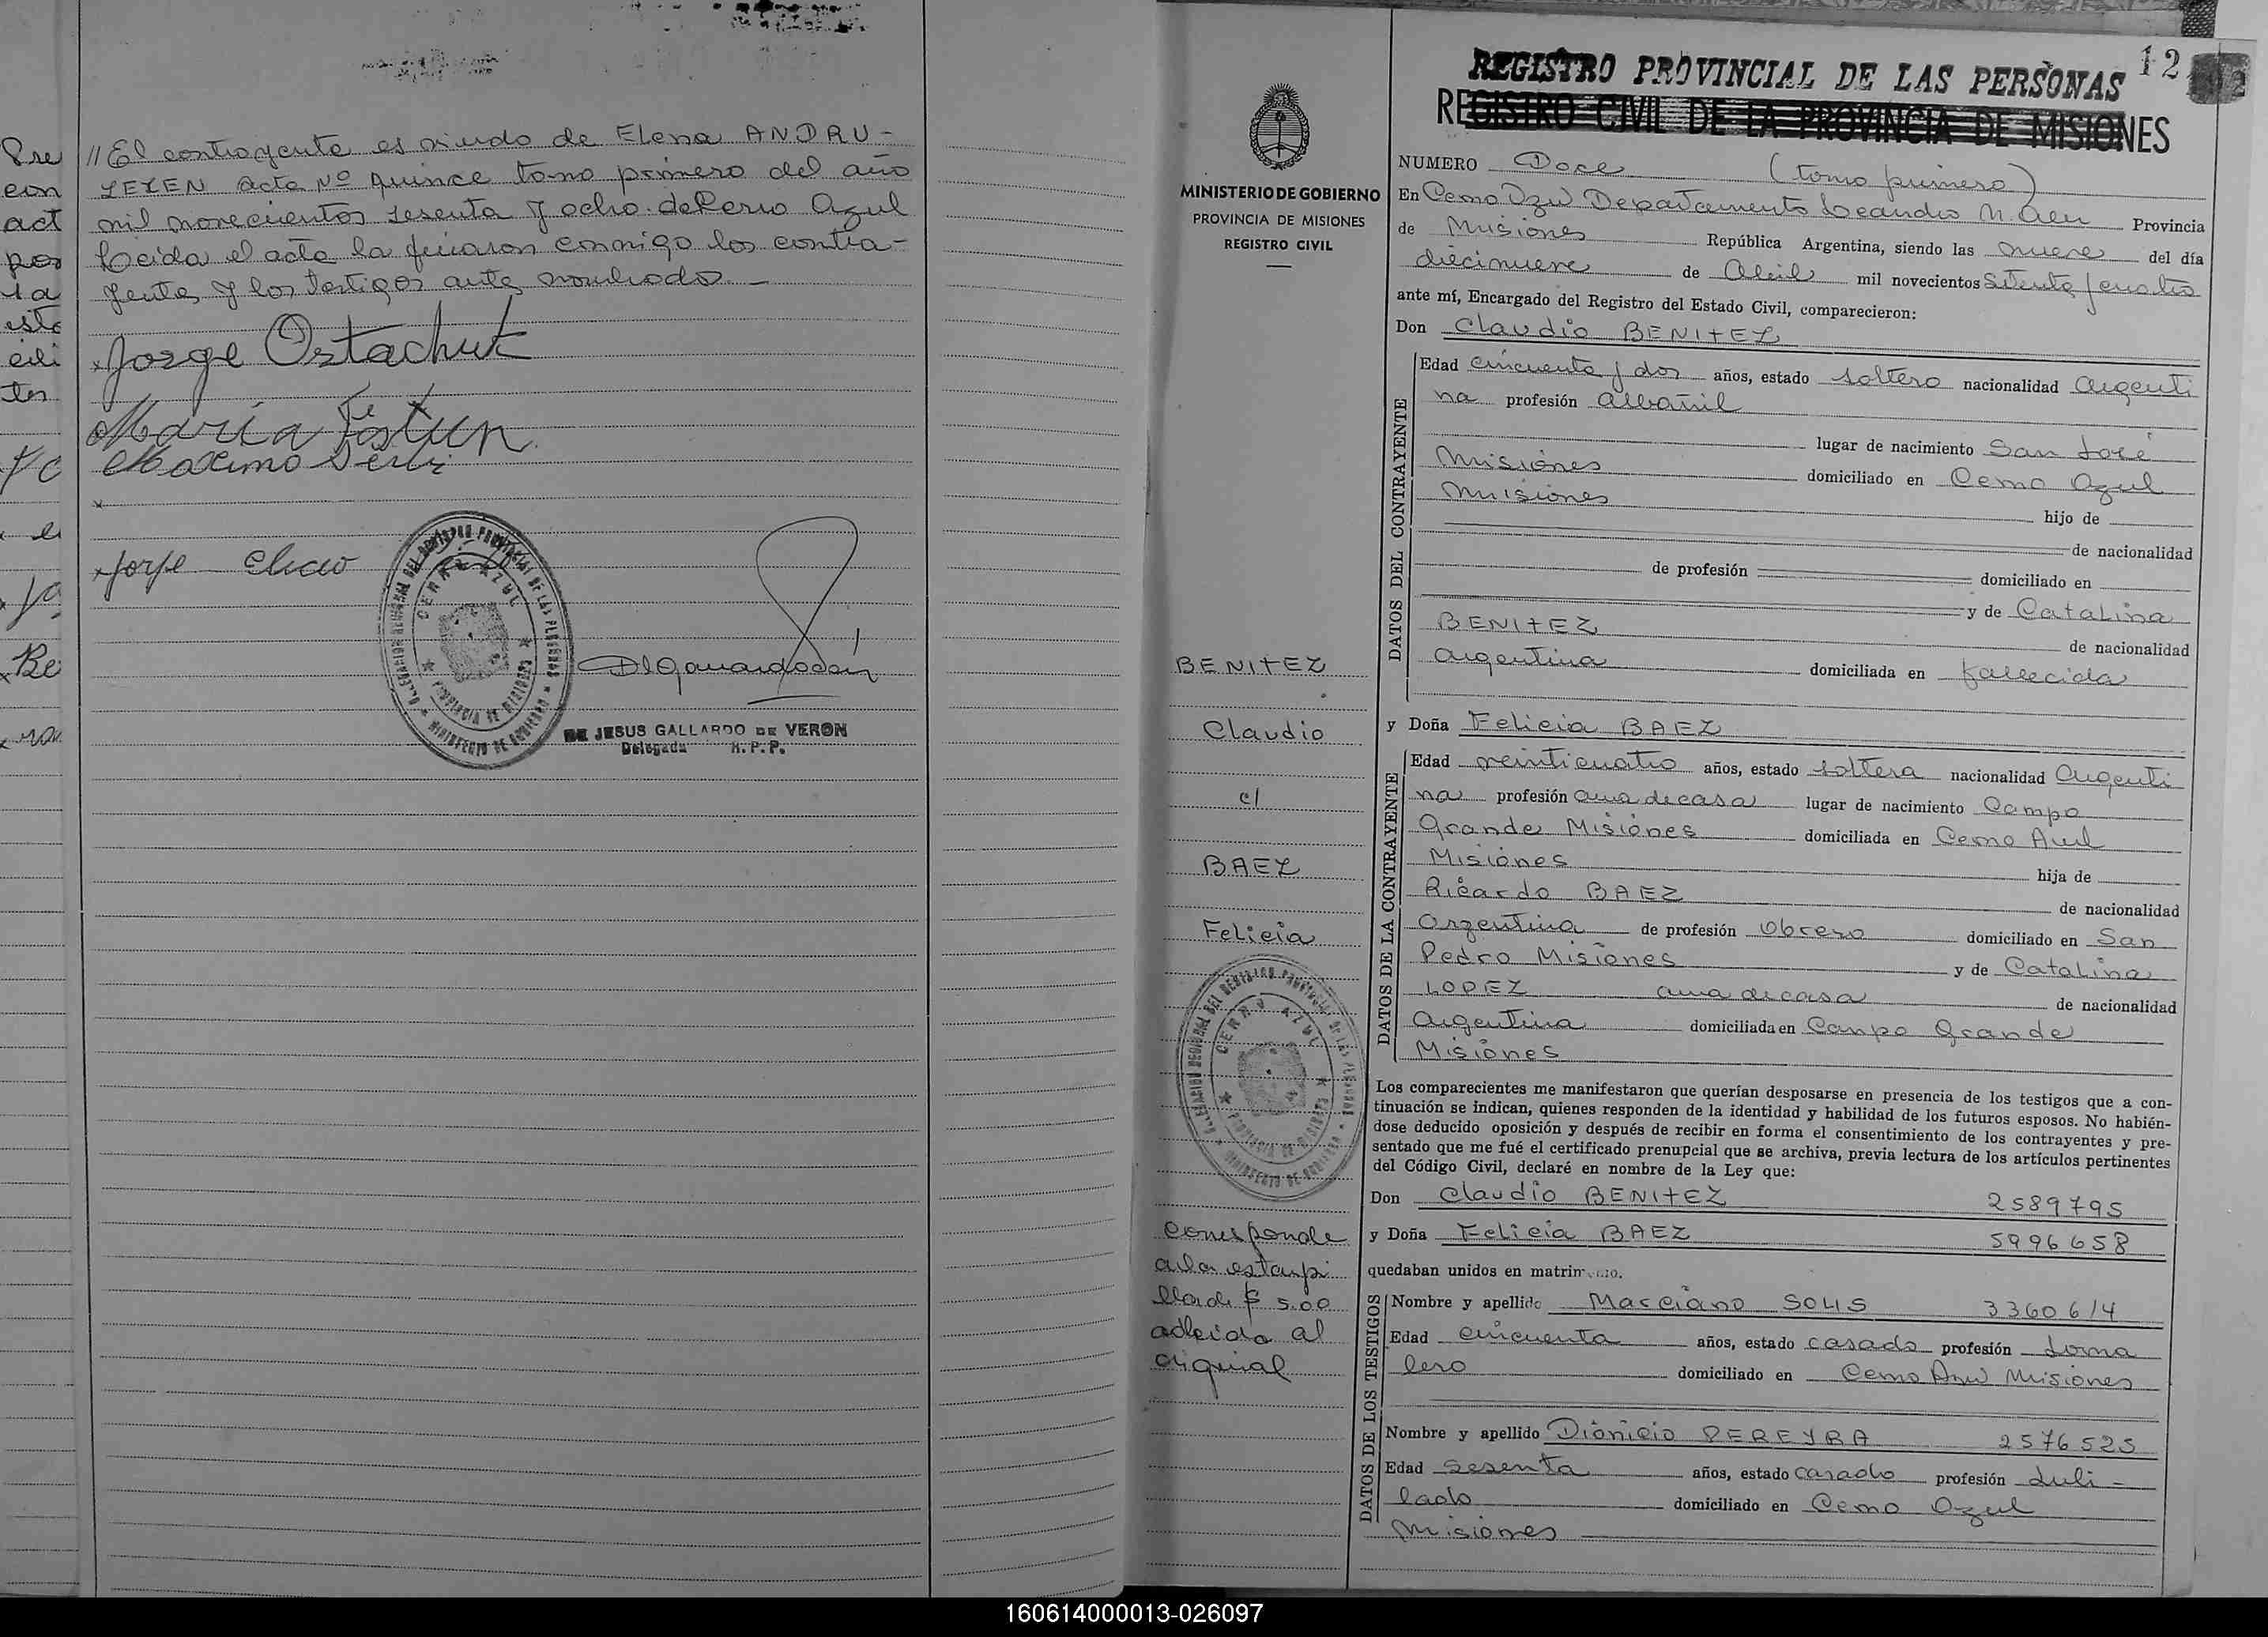 Pre
con
act
por
la
este
tes
// El contrayente es viudo de Elena ANDRU-
SEZEN acta Nº quince tomo primero del año
mil novecientos sesenta y ocho de Cerro Azul
Leida el acta la firmaron conmigo los contra-
yentes y los testigos ante nombrado. —
Jorge Ostachuk
María
Maximo
Jorge
CERRO AZUL
PROVINCIA DE MISIONES
MINISTERIO DE GOBIERNO
DE JESUS GALLARDO DE VERON
Delegada R.P.P.
12
REGISTRO PROVINCIAL DE LAS PERSONAS
REGISTRO CIVIL DE LA PROVINCIA DE MISIONES
MINISTERIO DE GOBIERNO
PROVINCIA DE MISIONES
REGISTRO CIVIL
NUMERO Doce (tomo primero)
En Cerro Azul Departamento Leandro N. Alem Provincia
de Misiones República Argentina, siendo las nueve del día
diecinueve de Abril mil novecientos setenta y cuatro
ante mí, Encargado del Registro del Estado Civil, comparecieron:
Don Claudio BENITEZ
DATOS DEL CONTRAYENTE
Edad cincuenta y dos años, estado soltero nacionalidad argenti
na profesión albañil
lugar de nacimiento San José
Misiones domiciliado en Cerro Azul
Misiones hijo de
de nacionalidad
de profesión domiciliado en
y de Catalina
BENITEZ de nacionalidad
argentina domiciliada en fallecida
y Doña Felicia BAEZ
DATOS DE LA CONTRAYENTE
Edad veinticuatro años, estado soltera nacionalidad Argenti
na profesión ama de casa lugar de nacimiento Campo
Grande Misiones domiciliada en Cerro Azul
Misiones hija de
Ricardo BAEZ de nacionalidad
Argentina de profesión Obrero domiciliado en San
Pedro Misiones y de Catalina
LOPEZ ama de casa de nacionalidad
Argentina domiciliada en Campo Grande
Misiones
Los comparecientes me manifestaron que querían desposarse en presencia de los testigos que a con-
tinuación se indican, quienes responden de la identidad y habilidad de los futuros esposos. No habién-
dose deducido oposición y después de recibir en forma el consentimiento de los contrayentes y pre-
sentado que me fué el certificado prenupcial que se archiva, previa lectura de los artículos pertinentes
del Código Civil, declaré en nombre de la Ley que:
Don Claudio BENITEZ 2589795
y Doña Felicia BAEZ 5996658
quedaban unidos en matrimonio.
DATOS DE LOS TESTIGOS
Nombre y apellido Marciano SOLIS 3360614
Edad cincuenta años, estado casado profesión Jorna
lero domiciliado en Cerro Azul Misiones
Nombre y apellido Dionicio PEREYRA 2576525
Edad sesenta años, estado casado profesión Jubi-
lado domiciliado en Cerro Azul
Misiones
BENITEZ
Claudio
c/
BAEZ
Felicia
CERRO AZUL
PROVINCIA DE MISIONES
MINISTERIO DE GOBIERNO
corresponde
a la estampi
lla de $ 5.00
adherida al
original
160614000013-026097